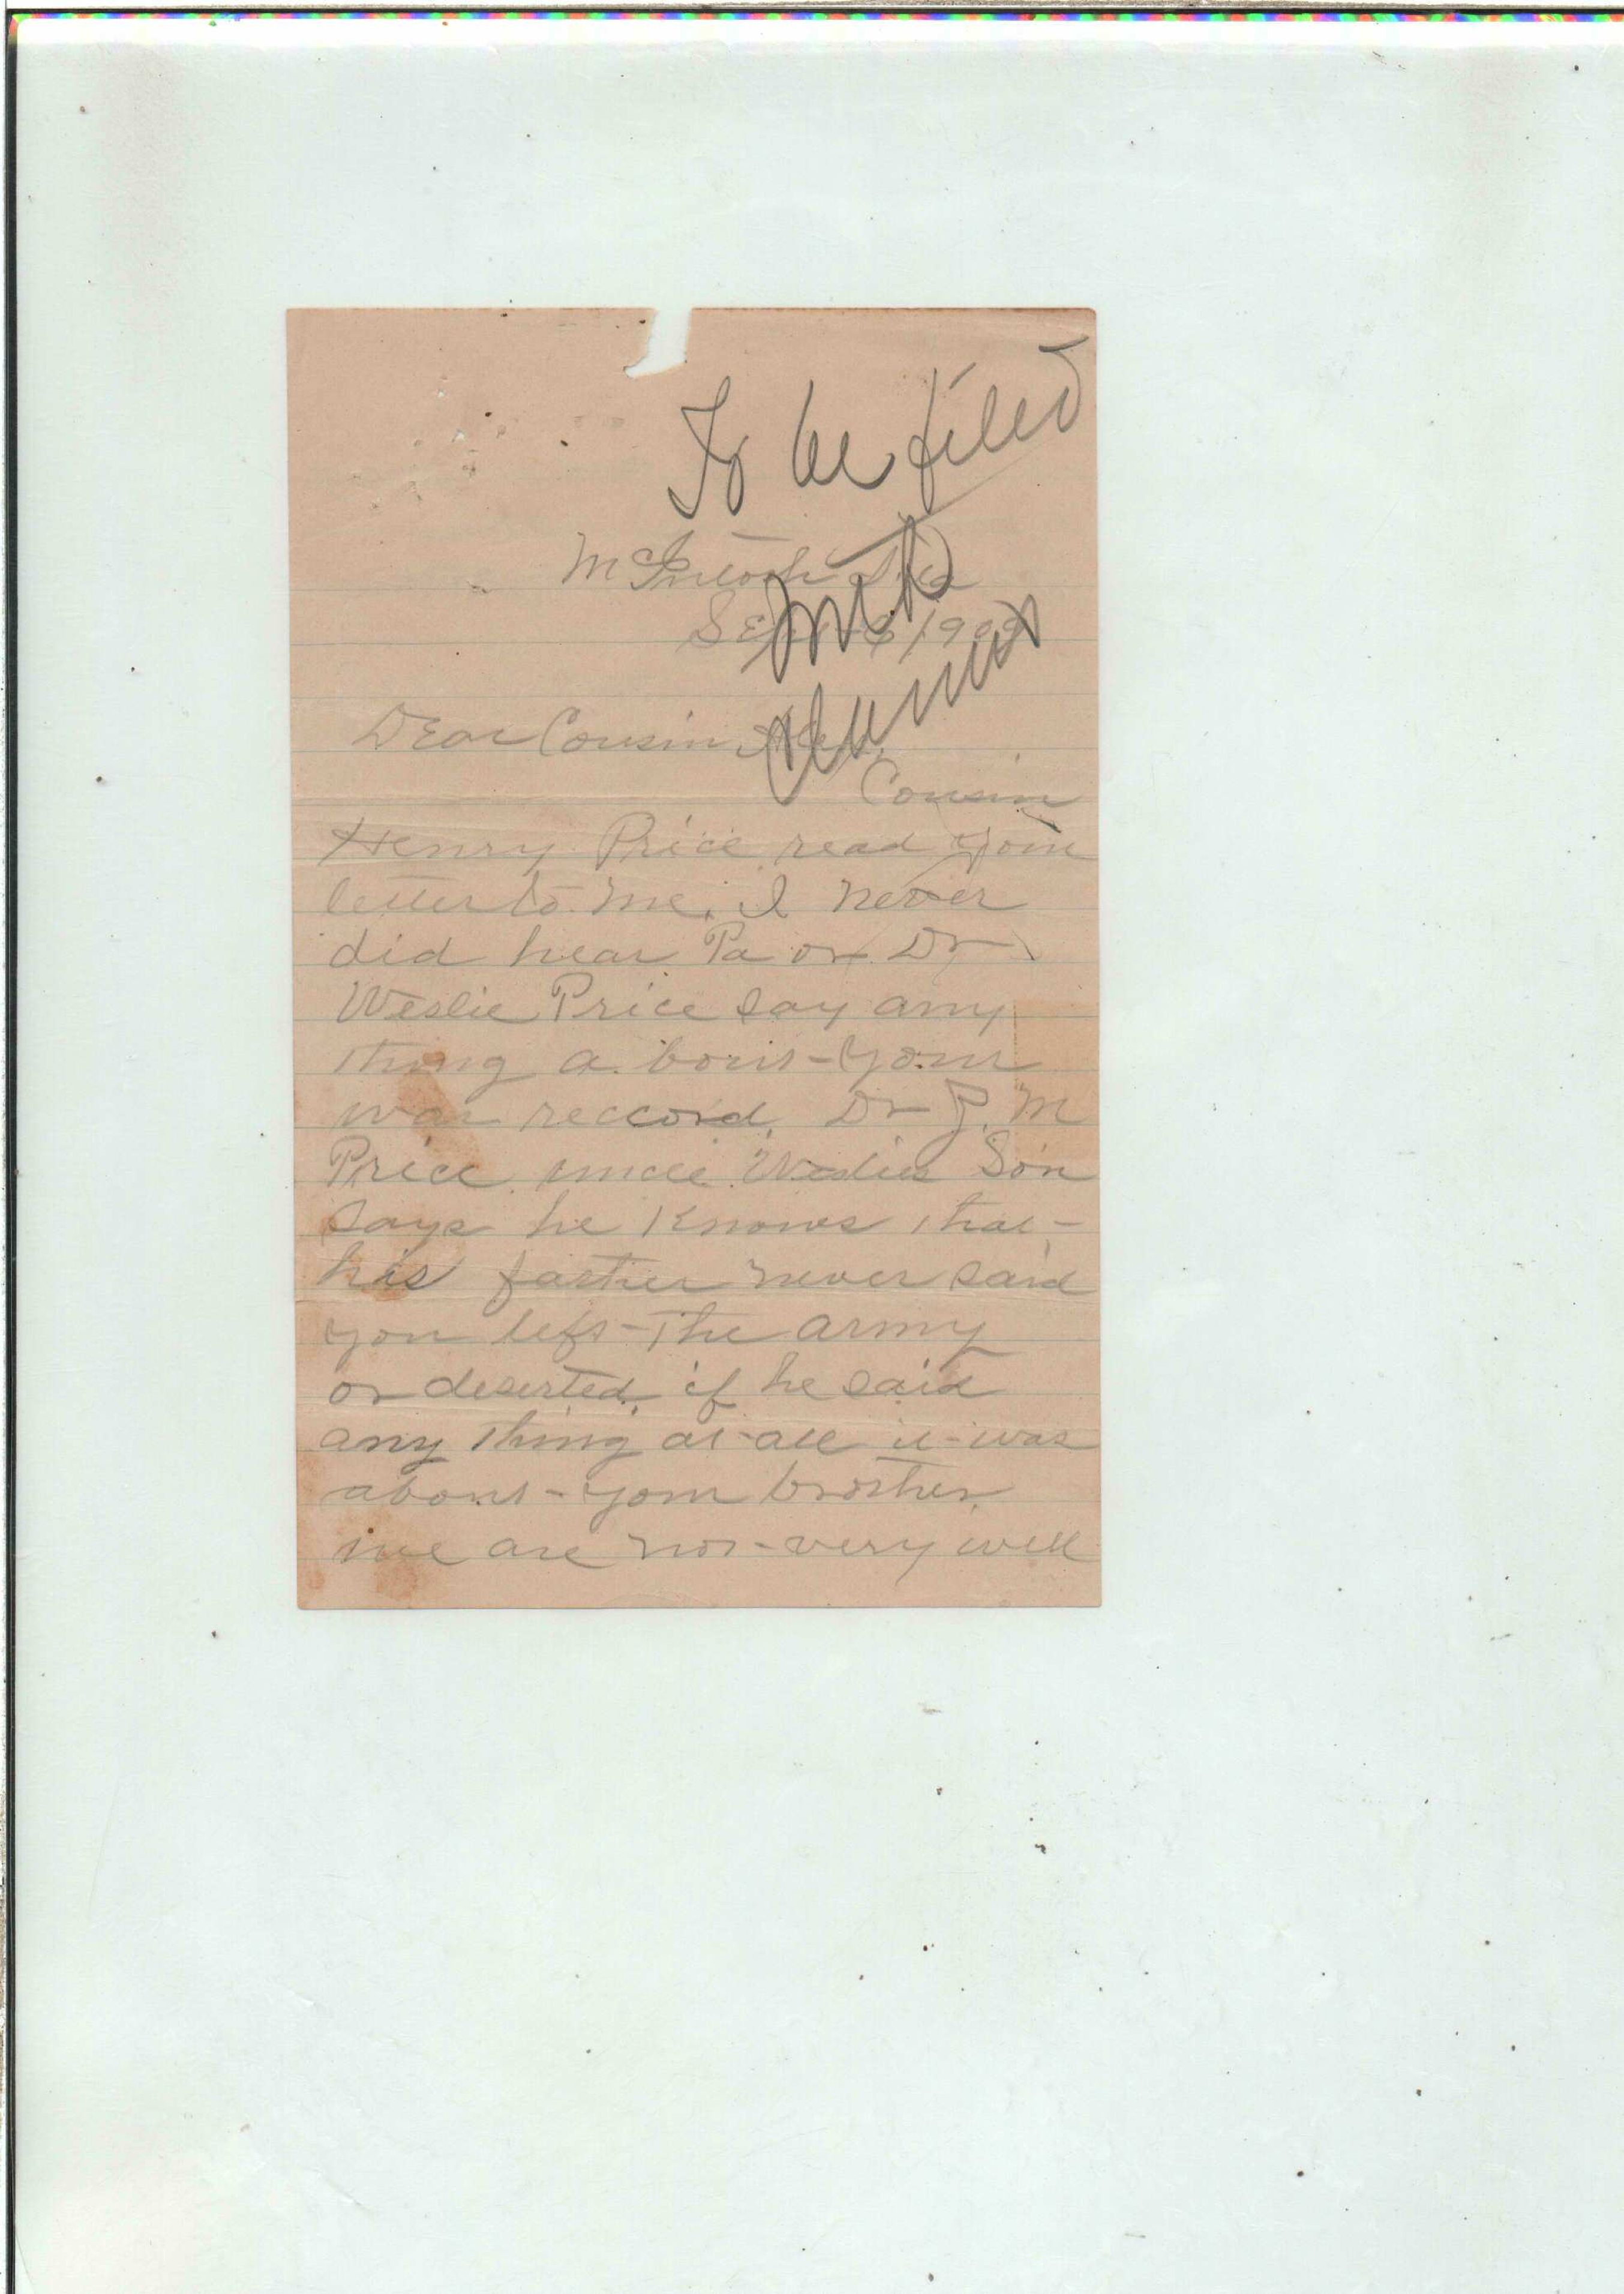 To be filed
with
claims
McIntosh Fla
Sept 6 1909
Dear Cousin
Cousin
Henry Price read your
letter to me. I never
did hear Pa or Dr
Weslie Price say any
thing a bout your
war reccord. Dr J. M
Price uncle Weslies Son
says he Knows that
his father never said
you left the army
or deserted. if he said
any thing at all it was
about your brother.
we are not very well